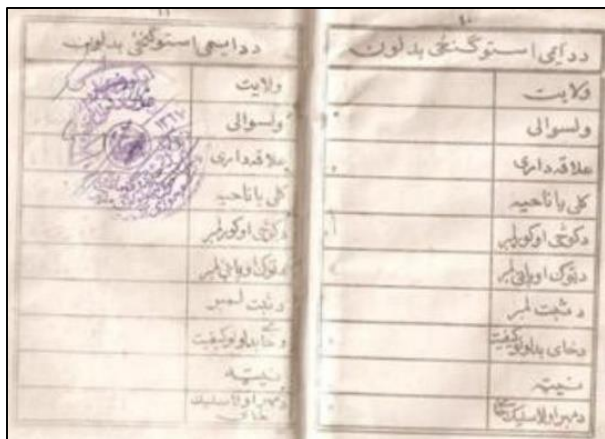 ۱۰
ددایمی استوگنځی بدلون
ولایت
ولسوالی
علاقه داری
کلی یا ناحیه
دکوڅی اوکورلمبر
دټوک اوپاڼی لمبر
د ثبت لمبر
دځای بدلولوکیفیت
نیټه
دمهر اولاسلیک ځای
۱۱
ددایمی استوگنځی بدلون
ولایت
ولسوالی
علاقه داری
کلی یا ناحیه
دکوڅی اوکورلمبر
دټوک اوپاڼی لمبر
د ثبت لمبر
دځای بدلولوکیفیت
نیټه
دمهر اولاسلیک ځای